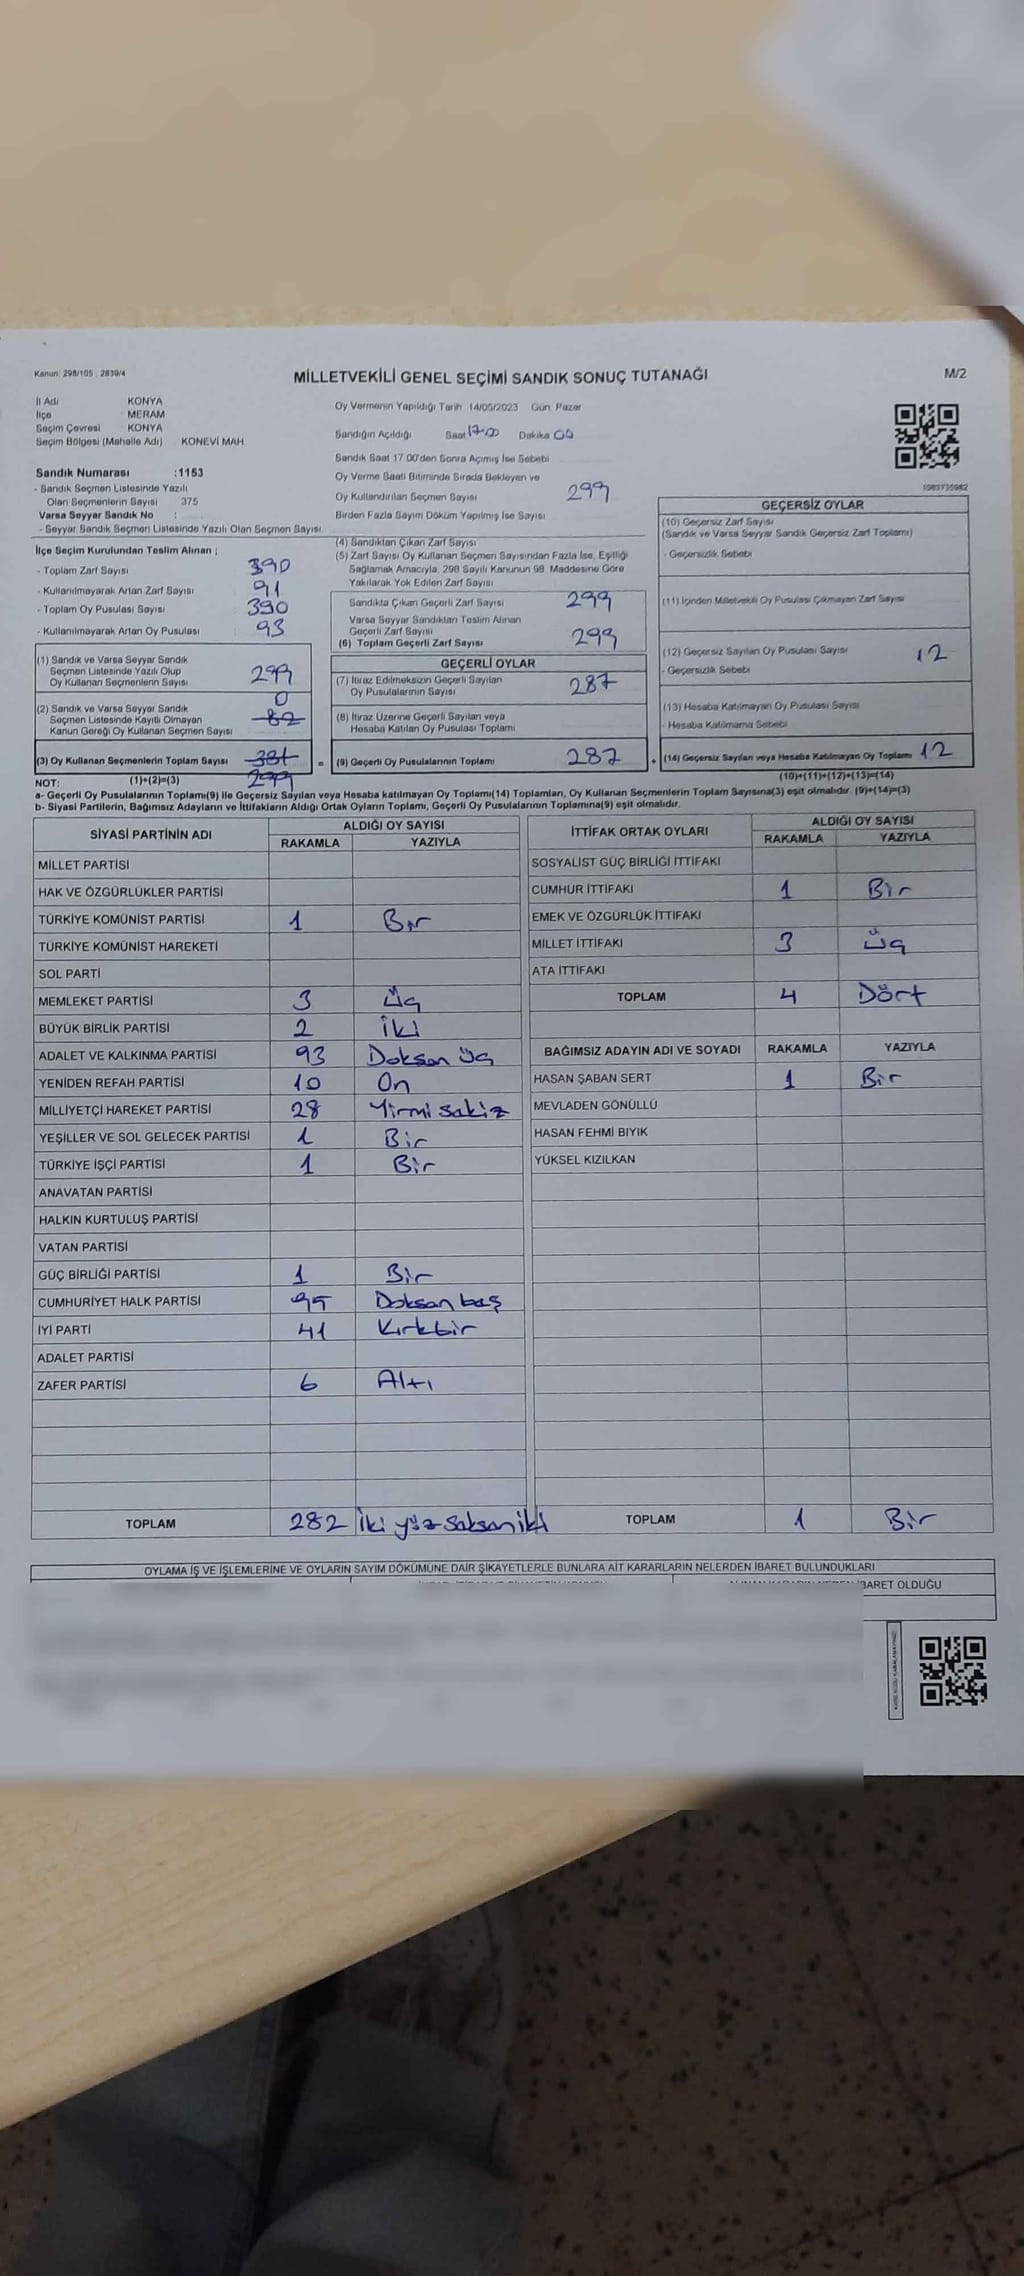 Kanun: 298/105 ; 2839/4
MİLLETVEKİLİ GENEL SEÇİMİ SANDIK SONUÇ TUTANAĞI
M/2
İl Adı KONYA
İlçe MERAM
Seçim Çevresi KONYA
Seçim Bölgesi (Mahalle Adı) KONEVİ MAH
Sandık Numarası :1153
- Sandık Seçmen Listesinde Yazılı
Olan Seçmenlerin Sayısı 375
Varsa Seyyar Sandık No :
- Seyyar Sandık Seçmen Listesinde Yazılı Olan Seçmen Sayısı:
Oy Vermenin Yapıldığı Tarih: 14/05/2023 Gün: Pazar
Sandığın Açıldığı Saat 17:00 Dakika 00
Sandık Saat 17.00'den Sonra Açmış İse Sebebi
Oy Verme Saati Bitiminde Sırada Bekleyen ve
Oy Kullandırılan Seçmen Sayısı 299
Birden Fazla Sayım Döküm Yapılmış İse Sayısı
1983735982
İlçe Seçim Kurulundan Teslim Alınan ;
- Toplam Zarf Sayısı 390
- Kullanılmayarak Artan Zarf Sayısı 91
- Toplam Oy Pusulası Sayısı 390
- Kullanılmayarak Artan Oy Pusulası 93
(1) Sandık ve Varsa Seyyar Sandık
Seçmen Listesinde Yazılı Olup
Oy Kullanan Seçmenlerin Sayısı 299
(2) Sandık ve Varsa Seyyar Sandık
Seçmen Listesinde Kayıtlı Olmayan
Kanun Gereği Oy Kullanan Seçmen Sayısı 0 82
(3) Oy Kullanan Seçmenlerin Toplam Sayısı 381 299
(4) Sandıktan Çıkan Zarf Sayısı
(5) Zarf Sayısı Oy Kullanan Seçmen Sayısından Fazla İse, Eşitliği
Sağlamak Amacıyla, 298 Sayılı Kanunun 98. Maddesine Göre
Yakılarak Yok Edilen Zarf Sayısı
Sandıkta Çıkan Geçerli Zarf Sayısı 299
Varsa Seyyar Sandıktan Teslim Alınan
Geçerli Zarf Sayısı
(6) Toplam Geçerli Zarf Sayısı 299
GEÇERLİ OYLAR
(7) İtiraz Edilmeksizin Geçerli Sayılan
Oy Pusulalarının Sayısı 287
(8) İtiraz Üzerine Geçerli Sayılan veya
Hesaba Katılan Oy Pusulası Toplamı
= (9) Geçerli Oy Pusulalarının Toplamı 287
GEÇERSİZ OYLAR
(10) Geçersiz Zarf Sayısı
(Sandık ve Varsa Seyyar Sandık Geçersiz Zarf Toplamı)
- Geçersizlik Sebebi
(11) İçinden Milletvekili Oy Pusulası Çıkmayan Zarf Sayısı
(12) Geçersiz Sayılan Oy Pusulası Sayısı 12
- Geçersizlik Sebebi
(13) Hesaba Katılmayan Oy Pusulası Sayısı
- Hesaba Katılmama Sebebi
+ (14) Geçersiz Sayılan veya Hesaba Katılmayan Oy Toplamı 12
NOT: (1)+(2)=(3) (10)+(11)+(12)+(13)=(14)
a- Geçerli Oy Pusulalarının Toplamı(9) ile Geçersiz Sayılan veya Hesaba katılmayan Oy Toplamı(14) Toplamları, Oy Kullanan Seçmenlerin Toplam Sayısına(3) eşit olmalıdır. (9)+(14)=(3)
b- Siyasi Partilerin, Bağımsız Adayların ve İttifakların Aldığı Ortak Oyların Toplamı, Geçerli Oy Pusulalarının Toplamına(9) eşit olmalıdır.
SİYASİ PARTİNİN ADI ALDIĞI OY SAYISI
RAKAMLA YAZIYLA
MİLLET PARTİSİ
HAK VE ÖZGÜRLÜKLER PARTİSİ
TÜRKİYE KOMÜNİST PARTİSİ 1 Bir
TÜRKİYE KOMÜNİST HAREKETİ
SOL PARTİ
MEMLEKET PARTİSİ 3 Üç
BÜYÜK BİRLİK PARTİSİ 2 İki
ADALET VE KALKINMA PARTİSİ 93 Doksan üç
YENİDEN REFAH PARTİSİ 10 On
MİLLİYETÇİ HAREKET PARTİSİ 28 Yirmi sekiz
YEŞİLLER VE SOL GELECEK PARTİSİ 1 Bir
TÜRKİYE İŞÇİ PARTİSİ 1 Bir
ANAVATAN PARTİSİ
HALKIN KURTULUŞ PARTİSİ
VATAN PARTİSİ
GÜÇ BİRLİĞİ PARTİSİ 1 Bir
CUMHURİYET HALK PARTİSİ 95 Doksan beş
İYİ PARTİ 41 Kırkbir
ADALET PARTİSİ
ZAFER PARTİSİ 6 Altı
TOPLAM 282 İki yüz seksen iki
İTTİFAK ORTAK OYLARI ALDIĞI OY SAYISI
RAKAMLA YAZIYLA
SOSYALİST GÜÇ BİRLİĞİ İTTİFAKI
CUMHUR İTTİFAKI 1 Bir
EMEK VE ÖZGÜRLÜK İTTİFAKI
MİLLET İTTİFAKI 3 Üç
ATA İTTİFAKI
TOPLAM 4 Dört
BAĞIMSIZ ADAYIN ADI VE SOYADI RAKAMLA YAZIYLA
HASAN ŞABAN SERT 1 Bir
MEVLADEN GÖNÜLLÜ
HASAN FEHMİ BIYIK
YÜKSEL KIZILKAN
TOPLAM 1 Bir
OYLAMA İŞ VE İŞLEMLERİNE VE OYLARIN SAYIM DÖKÜMÜNE DAİR ŞİKAYETLERLE BUNLARA AİT KARARLARIN NELERDEN İBARET BULUNDUKLARI
İBARET OLDUĞU